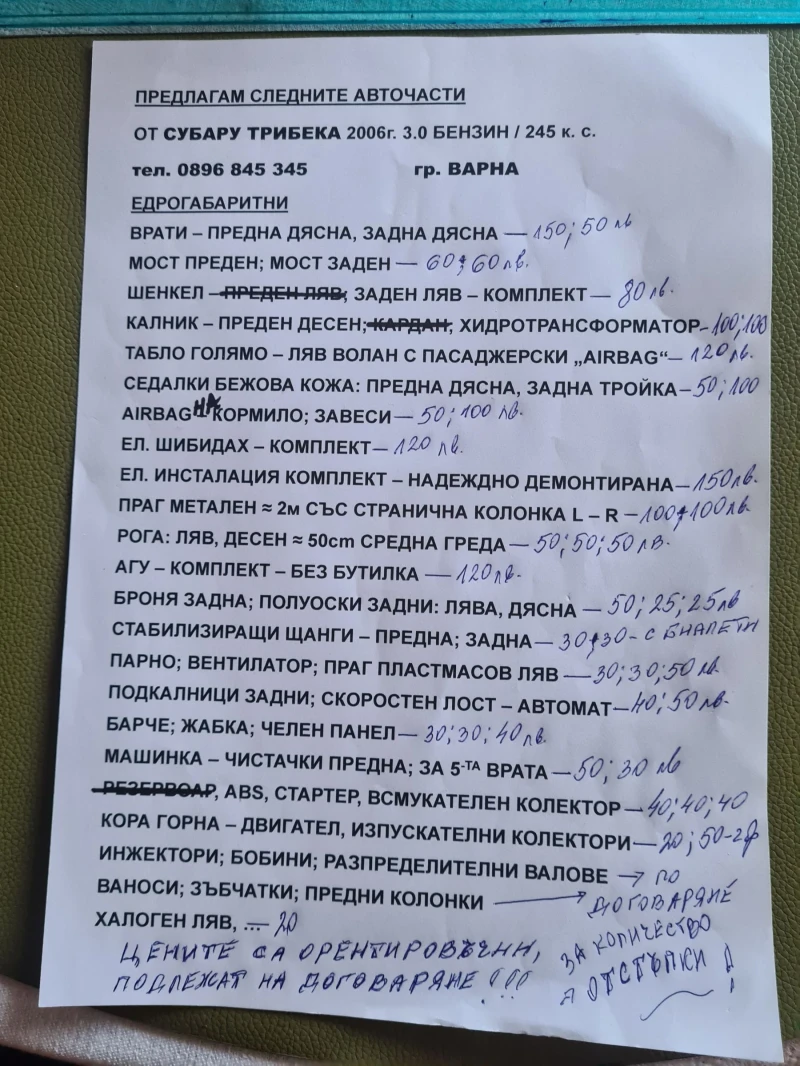 ПРЕДЛАГАМ СЛЕДНИТЕ АВТОЧАСТИ
ОТ СУБАРУ ТРИБЕКА 2006г. 3.0 БЕНЗИН / 245 к. с.
тел. 0896 845 345 гр. ВАРНА
ЕДРОГАБАРИТНИ
ВРАТИ – ПРЕДНА ДЯСНА, ЗАДНА ДЯСНА — 150; 50 лв
МОСТ ПРЕДЕН; МОСТ ЗАДЕН — 60; 60 лв.
ШЕНКЕЛ – ПРЕДЕН ЛЯВ; ЗАДЕН ЛЯВ – КОМПЛЕКТ — 80 лв.
КАЛНИК – ПРЕДЕН ДЕСЕН; КАРДАН; ХИДРОТРАНСФОРМАТОР – 100; 100
ТАБЛО ГОЛЯМО – ЛЯВ ВОЛАН С ПАСАДЖЕРСКИ „AIRBAG“ – 120 лв.
СЕДАЛКИ БЕЖОВА КОЖА: ПРЕДНА ДЯСНА, ЗАДНА ТРОЙКА – 50; 100
AIRBAG НА КОРМИЛО; ЗАВЕСИ — 50; 100 лв.
ЕЛ. ШИБИДАХ – КОМПЛЕКТ — 120 лв.
ЕЛ. ИНСТАЛАЦИЯ КОМПЛЕКТ – НАДЕЖДНО ДЕМОНТИРАНА — 150 лв.
ПРАГ МЕТАЛЕН ≈ 2м СЪС СТРАНИЧНА КОЛОНКА L – R – 100; 100 лв.
РОГА: ЛЯВ, ДЕСЕН ≈ 50cm СРЕДНА ГРЕДА — 50; 50; 50 лв.
АГУ – КОМПЛЕКТ – БЕЗ БУТИЛКА — 120 лв.
БРОНЯ ЗАДНА; ПОЛУОСКИ ЗАДНИ: ЛЯВА, ДЯСНА — 50; 25; 25 лв
СТАБИЛИЗИРАЩИ ЩАНГИ – ПРЕДНА; ЗАДНА — 30; 30 – С БИАЛЕТИ
ПАРНО; ВЕНТИЛАТОР; ПРАГ ПЛАСТМАСОВ ЛЯВ — 30; 30; 50 лв.
ПОДКАЛНИЦИ ЗАДНИ; СКОРОСТЕН ЛОСТ – АВТОМАТ — 40; 50 лв.
БАРЧЕ; ЖАБКА; ЧЕЛЕН ПАНЕЛ — 30; 30; 40 лв.
МАШИНКА – ЧИСТАЧКИ ПРЕДНА; ЗА 5-ТА ВРАТА — 50; 30 лв
РЕЗЕРВОАР, ABS, СТАРТЕР, ВСМУКАТЕЛЕН КОЛЕКТОР – 40; 40; 40
КОРА ГОРНА – ДВИГАТЕЛ, ИЗПУСКАТЕЛНИ КОЛЕКТОРИ — 20; 50-
ИНЖЕКТОРИ; БОБИНИ; РАЗПРЕДЕЛИТЕЛНИ ВАЛОВЕ → ПО
ВАНОСИ; ЗЪБЧАТКИ; ПРЕДНИ КОЛОНКИ → ДОГОВАРЯНЕ
ХАЛОГЕН ЛЯВ, ... – 20
ЦЕНИТЕ СА ОРЕНТИРОВЪЧНИ,
ПОДЛЕЖАТ НА ДОГОВАРЯНЕ !!!
ЗА КОЛИЧЕСТВО
ОТСТЪПКИ !